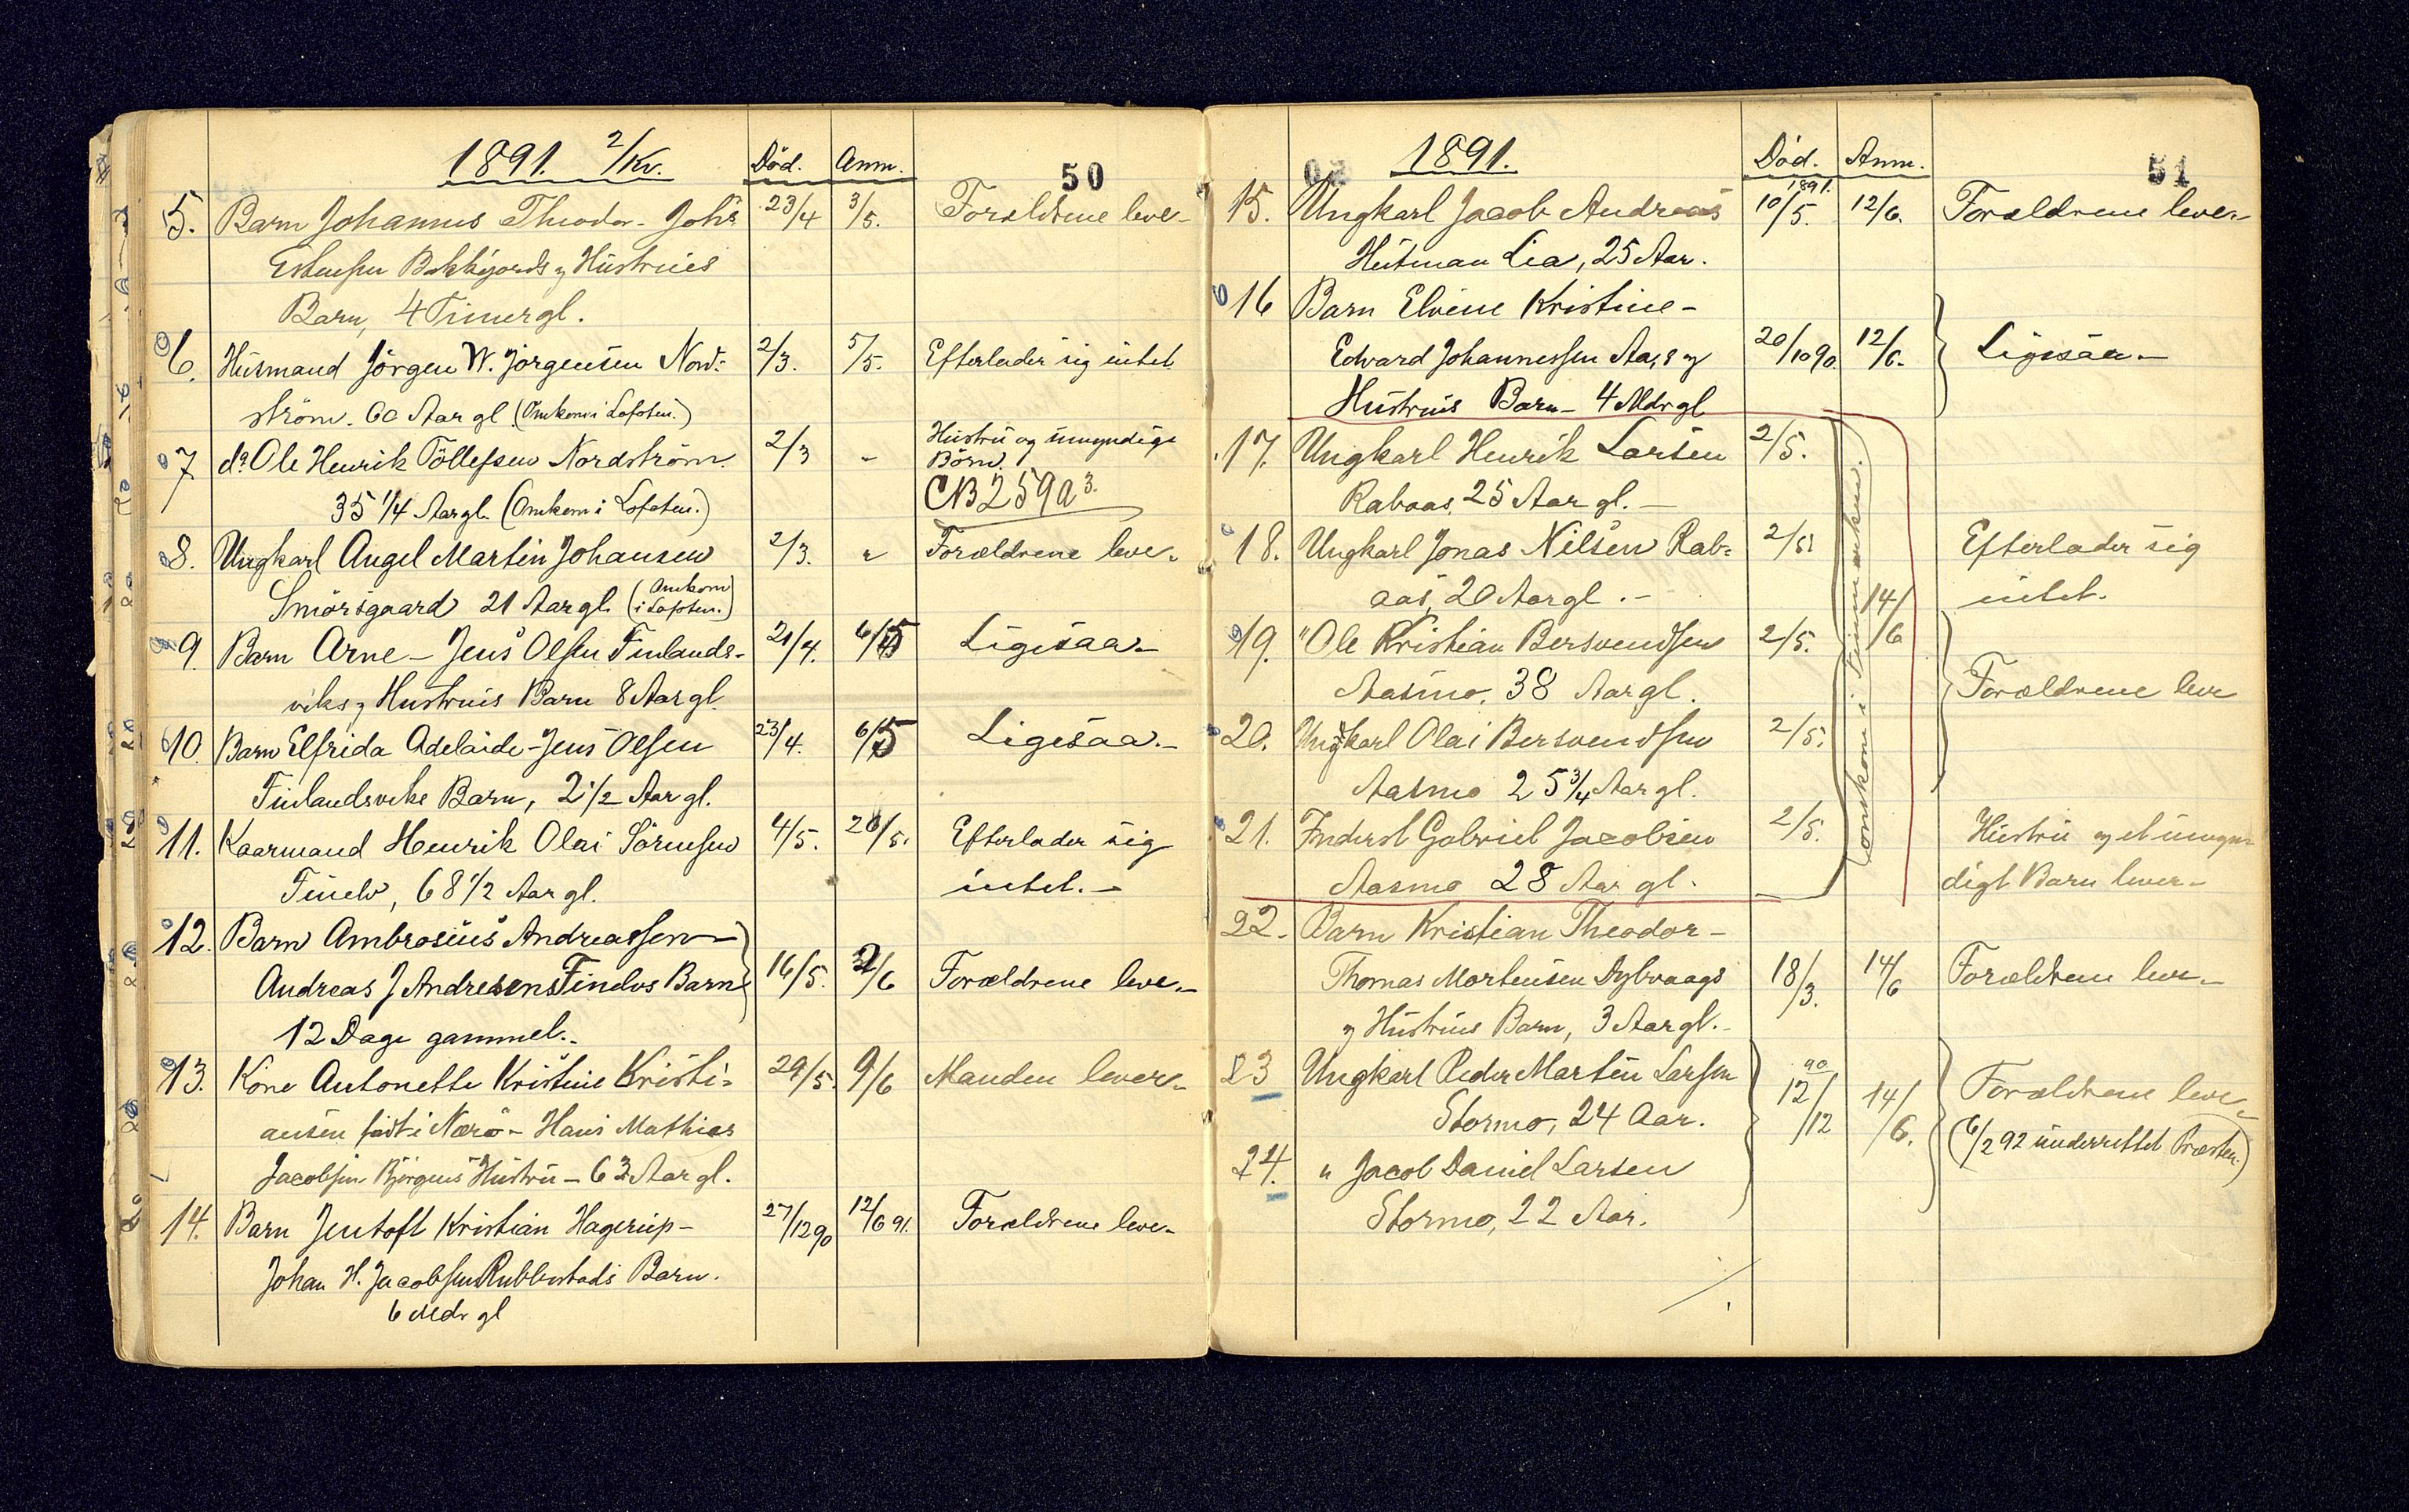 1891. 2/Kv. Död. Anm. 50
5. Barn Johannes Theodor - Johs 23/4 3/5. Forældrene leve -
Estensen Bakkejords og Hustrues
Barn, 4 Timer gl.
6. Husmand Jörgen W. Jörgensen Nord- 2/3. 5/5. Efterlader sig intet
ström. 60 Aar gl (Omkom i Lofoten.)
7 do Ole Henrik Töllefsen Nordström. 2/3 " Hustru og umyndige
Börn.
35 1/4 Aar gl. (Omkom i Lofoten.) CB 259a 3.
8. Ungkarl Angel Martin Johansen 2/3. " Forældrene leve.
Smörsgaard 21 Aar gl. (Omkom i Lofoten.)
9. Barn Arne - Jens Olsen Finlands- 21/4. 6/5 Ligesaa -
viks og Hustrues Barn 8 Aar gl.
10. Barn Elfrida Adelaide - Jens Olsen 23/4. 6/5 Ligesaa. -
Finlandsviks Barn, 2 1/2 Aar gl.
11. Kaarmand Henrik Olai Sörensen 4/5. 26/5. Efterlader sig
Finelv, 68 1/2 Aar gl. intet. -
12. Barn Ambrosius Andreassen -
Andreas J Andresens Findvs Barn 16/5. 2/6 Forældrene leve. -
12 Dage gammel. -
13. Kone Antonette Kristine Kristi- 29/5. 9/6 Manden lever -
ansen födt i Nærö - Hans Mathias
Jacobsen Björgens Hustru - 63 Aar gl.
14. Barn Jentoft Kristian Hagerup - 27/12 90 12/6 91. Forældrene leve -
Johan H. Jacobsen Rubbestads Barn.
6 Mdr gl
1891. Död. Anm. 51
15. Ungkarl Jacob Andreas 10/5. 1891. 12/6. Forældrene leve -
Hutman Lia, 25 Aar.
16 Barn Elvine Kristine -
Edvard Johannessen Aas og 20/10 90. 12/6. Ligesaa -
Hustrues Barn - 4 Mdr gl
17. Ungkarl Henrik Larsen 2/5.
Rabaas, 25 Aar gl. -
18. Ungkarl Jonas Nilsen Rab- 2/5. Efterlader sig
aas, 20 Aar gl. - 14/6 intet.
omkom i Finmarken.
19. " Ole Kristian Bersvendsen 2/5.
Aasmo, 38 Aar gl. Forældrene leve
20. Ungkarl Olai Bersvendsen 2/5.
Aasmo 25 3/4 Aar gl.
21. Inderst Gabriel Jacobsen 2/5. Hustru og et umyn-
Aasmo 28 Aar gl. digt Barn lever -
22. Barn Kristian Theodor -
Thomas Mortensen Dybvaags 18/3. 14/6 Forældrene leve -
og Hustrues Barn, 3 Aar gl. -
23 Ungkarl Peder Martin Larsen 90 Forældrene leve -
Stormo, 24 Aar. 12/12 14/6. (6/2 92 underrettet Præsten.)
24. " Jacob Daniel Larsen
Stormo, 22 Aar.